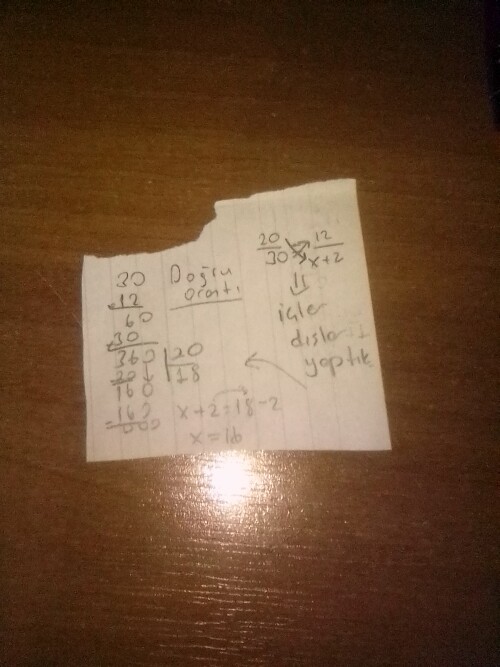 30
.12
60
30
360 | 20
20 18
160
160
000
Doğru
orantı
20 12
30 x+2
içler
dışlar
yaptık
x+2=18-2
x=16